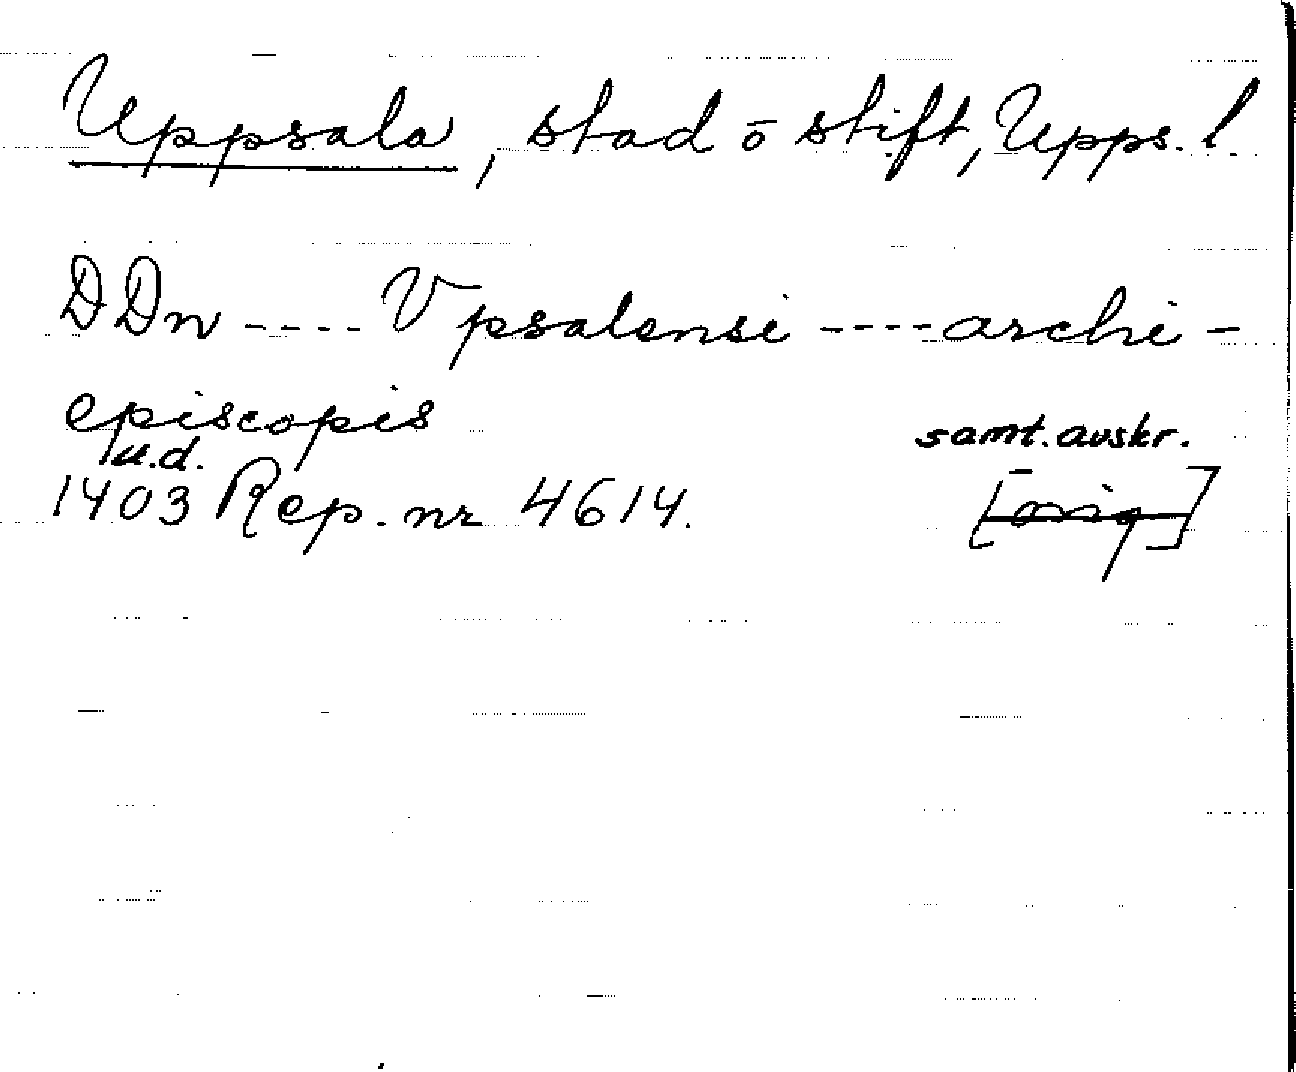 Uppsala, stad ō stift, Upps. l.
DDn ---- Vpsalensi ---- archi-
episcopis
samt. avskr.
u.d.
1403 Rep. nr 4614. [orig]